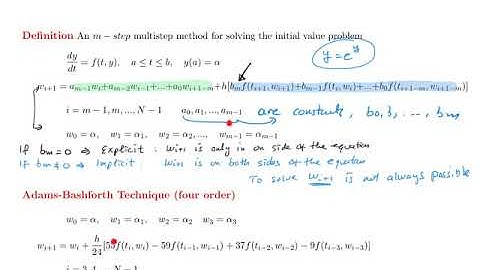 Definition An m − step multistep method for solving the initial value problem
dy/dt = f(t, y), a ≤ t ≤ b, y(a) = α
y = e^y
w_{i+1} = a_{m−1}w_i + a_{m−2}w_{i−1} + ... + a_0w_{i+1−m} + h[b_mf(t_{i+1}, w_{i+1}) + b_{m−1}f(t_i, w_i) + ... + b_0f(t_{i+1−m}, w_{i+1−m})]
i = m − 1, m, ..., N − 1 a_0, a_1, ..., a_{m−1} are constants, b_0, b_1, ..., b_m
w_0 = α, w_1 = α_1, w_2 = α_2, ..., w_{m−1} = α_{m−1}
If b_m = 0 ⇒ Explicit : w_{i+1} is only in on side of the equation
If b_m ≠ 0 ⇒ Implicit : w_{i+1} is on both sides of the equation
To solve w_{i+1} is not always possible
Adams-Bashforth Technique (four order)
w_0 = α, w_1 = α_1, w_2 = α_2 w_3 = α_3
w_{i+1} = w_i + h/24[55f(t_i, w_i) − 59f(t_{i−1}, w_{i−1}) + 37f(t_{i−2}, w_{i−2}) − 9f(t_{i−3}, w_{i−3})]
i = 3, 4, ..., N − 1